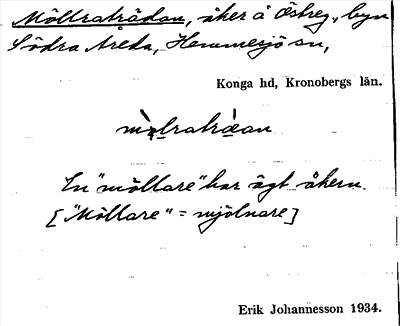 Möllraträdan, åker å Östreg., byn
Södra Åreda, Hemmesjö sn,
Konga hd, Kronobergs län.
En "möllare" har ägt åkern.
["Möllare" = mjölnare]
Erik Johannesson 1934.